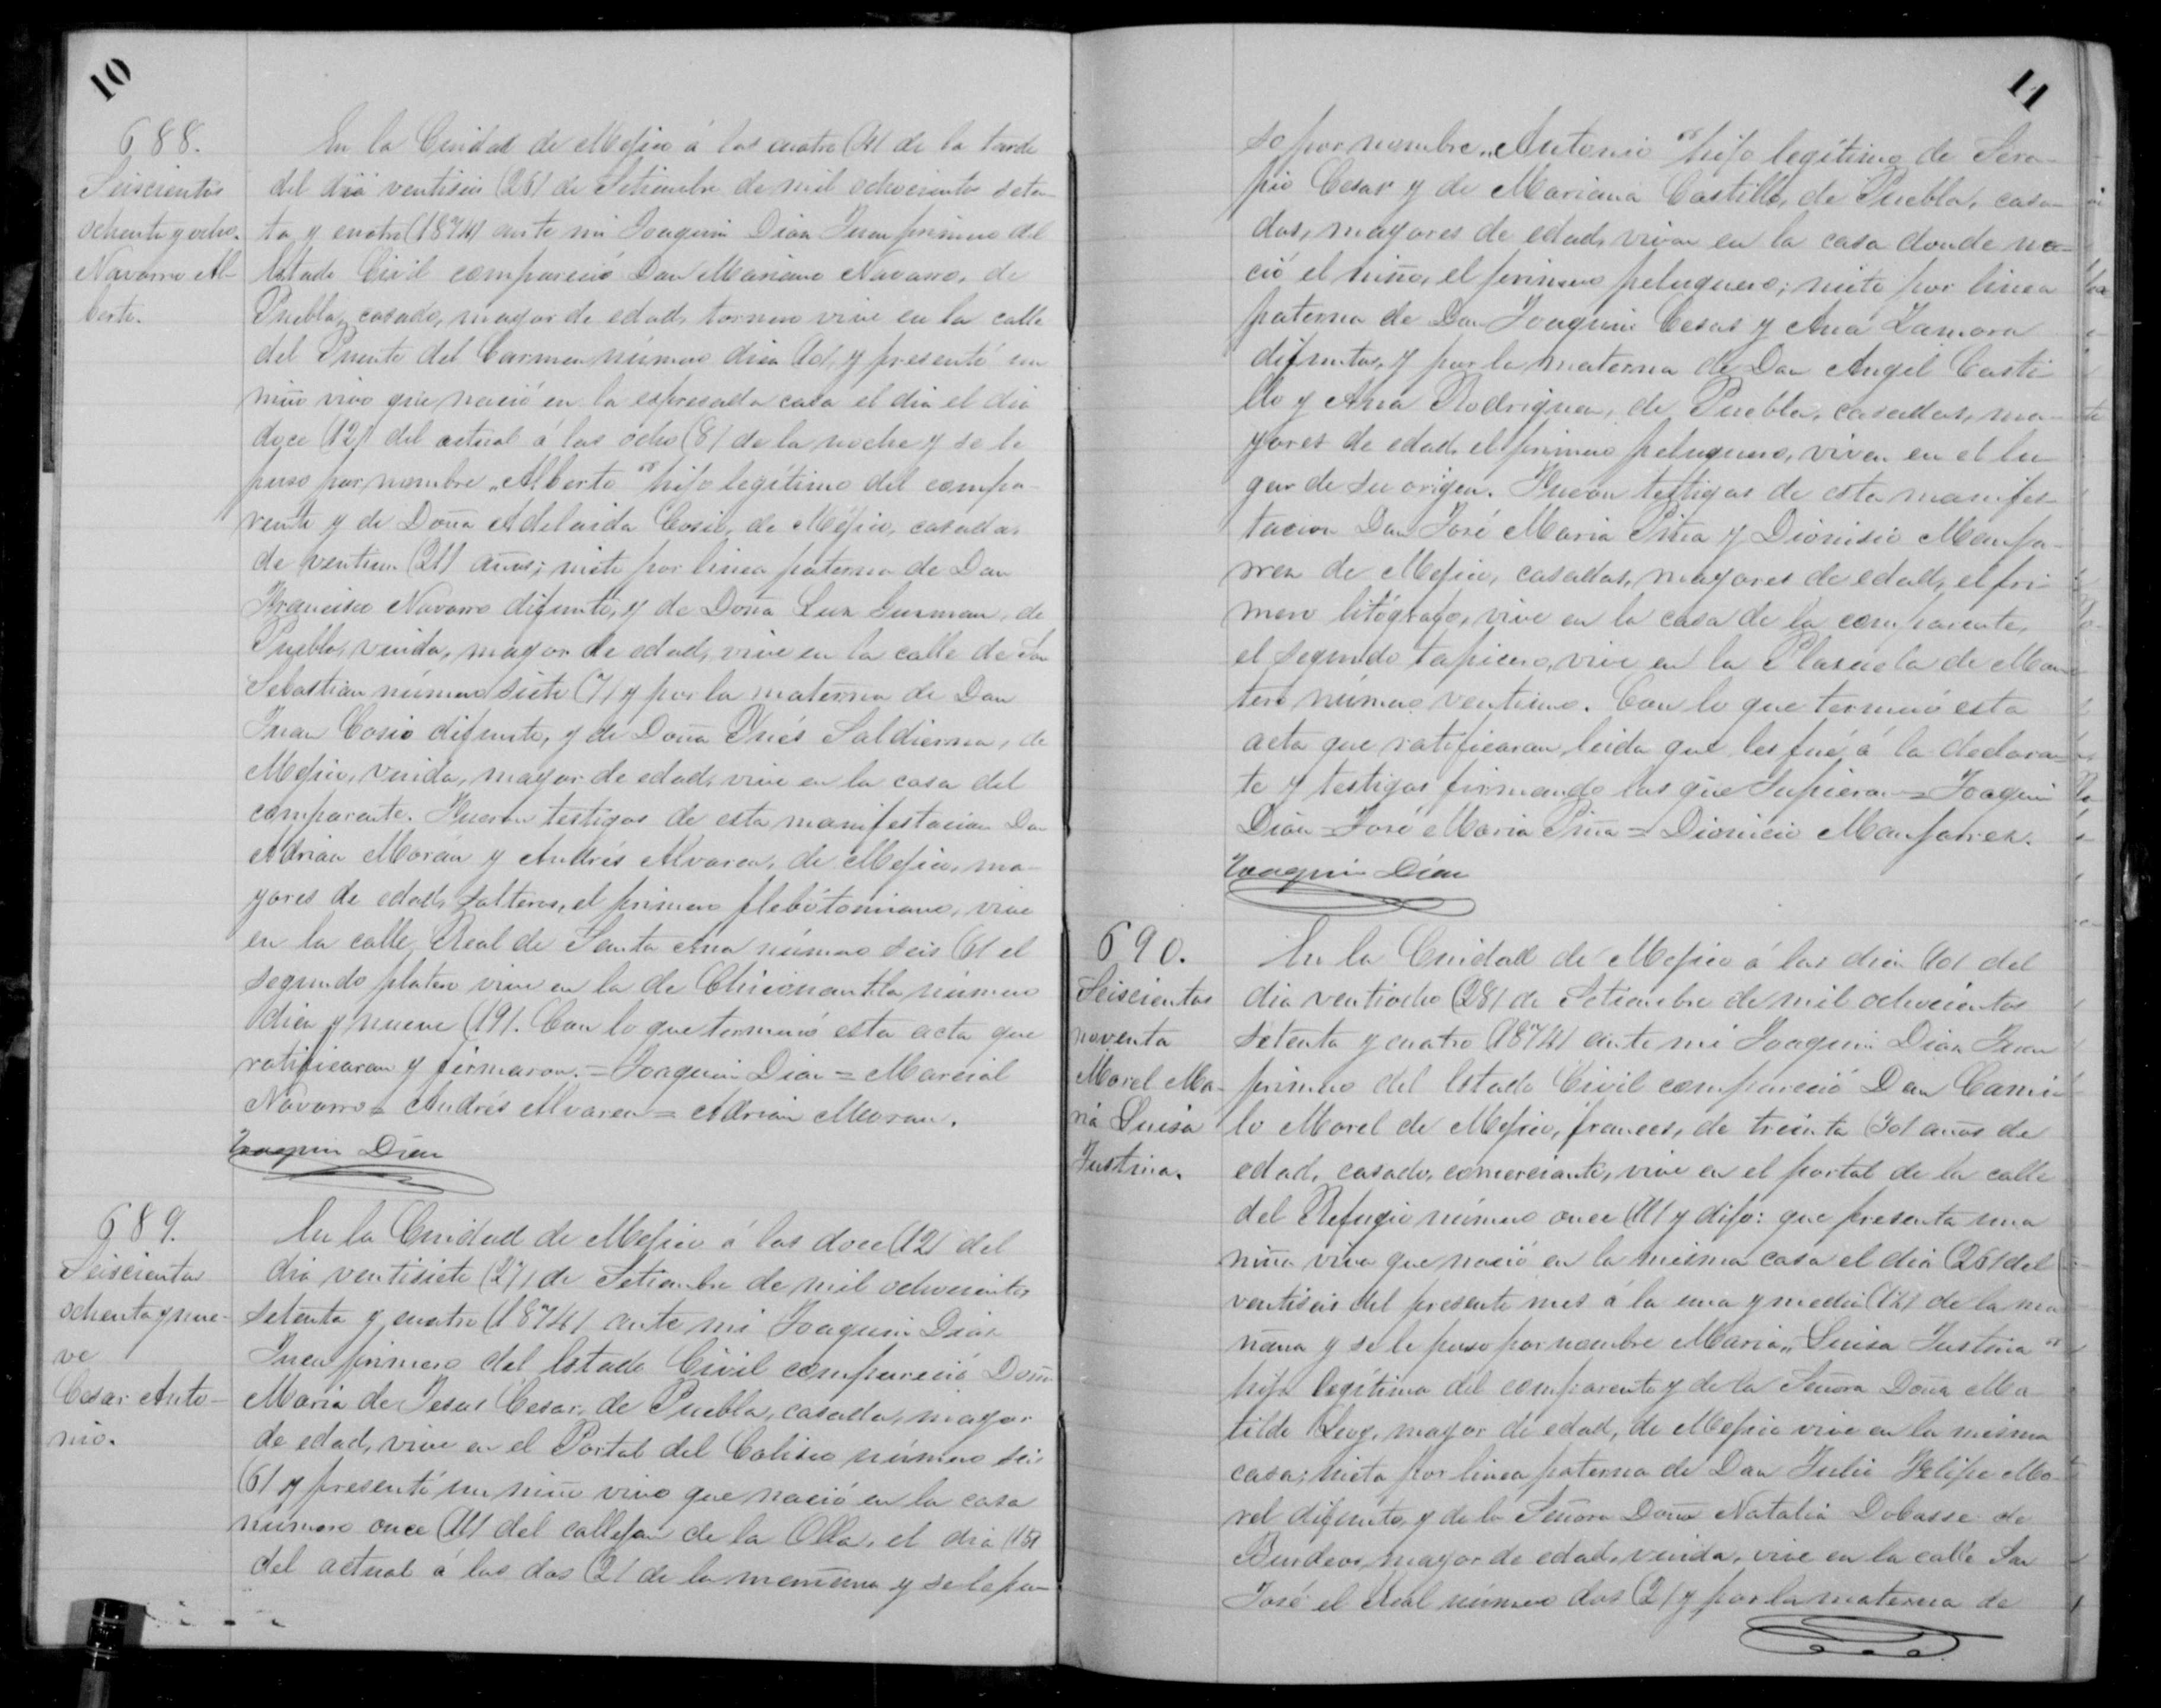 10
688.
Seiscientos
ochenta y ocho.
Navarro Al-
berto.
En la Ciudad de Mejico á las cuatro (4) de la tarde
del dia ventiseis (26) de Setiembre de mil ochocientos seten-
ta y cuatro (1874) ante mi Joaquin Diaz Juez primero del
Estado Civil compareció Don Mariano Navarro, de
Puebla, casado, mayor de edad, tornero vive en la calle
del Puente del Carmen número diez (10), y presentó un
niño vivo que nació en la espresada casa el dia el dia
doce (12) del actual á las ocho (8) de la noche y se le
puso por nombre "Alberto" hijo legítimo del compa-
rente y de Doña Adelaida Cosio, de Méjico, casada,
de ventiun (21) años; nieto por linea paterna de Don
Francisco Navarro difunto, y de Doña Luz Guzman, de
Puebla, viuda, mayor de edad, vive en la calle de San
Sebastian número siete (7) y por la materna de Don
Juan Cosio difunto, y de Doña Ynés Saldierna, de
Mejico, viuda, mayor de edad, vive en la casa del
comparente. Fueron testigos de esta manifestacion Don
Adrián Morán y Andrés Alvarez, de Mejico, ma-
yores de edad, solteros, el primero flebótomiano, vive
en la calle Real de Santa Ana número seis (6) el
segundo platero vive en la de Chiconautla número
diez y nueve (19). Con lo que terminó esta acta que
ratificaron y firmaron. = Joaquin Diaz = Marcial
Navarro = Andrés Alvarez = Adrian Moran.
Joaquin Díaz
689.
Seiscientos
ochenta y nue-
ve
Cesar Anto-
nio.
En la Ciudad de Mejico á las doce (12) del
dia ventisiete (27) de Setiembre de mil ochocientos
setenta y cuatro (1874) ante mi Joaquin Diaz
Juez primero del Estado Civil compareció Doña
Maria de Jesus Cesar, de Puebla, casada, mayor
de edad, vive en el Portal del Coliseo número seis
(6) y presentó un niño vivo que nació en la casa
número once (11) del callejon de la Olla, el dia (15)
del actual á las dos (2) de la mañana y se le pu-
11
so por nombre "Antonio" hijo legítimo de Sera-
pio Cesar y de Mariana Castillo, de Puebla, casa-
dos, mayores de edad, viven en la casa donde na-
ció el niño, el primero peluquero; nieto por linea
paterna de Don Joaquin Cesar y Ana Zamora
difuntos, y por la materna de Don Angel Casti-
llo y Ana Rodriguez, de Puebla, casados, ma-
yores de edad, el primero peluquero, viven en el lu-
gar de su origen. Fueron testigos de esta manifes-
tacion Don José Maria Piña y Dionisio Manja-
rrez de Mejico, casados, mayores de edad, el pri-
mero litógrafo, vive en la casa de la comparente,
el segundo tapicero, vive en la Plazuela de Mon-
tero número ventiuno. Con lo que terminó esta
acta que ratificaron leida que les fué á la declaran-
te y testigos firmando los que supieron = Joaquin
Diaz = José Maria Piña = Dionicio Manjarrez.
Joaquin Díaz
690.
Seiscientos
noventa
Morel Ma-
ria Luisa
Justina.
En la Ciudad de Mejico á las diez (10) del
dia ventiocho (28) de Setiembre de mil ochocientos
setenta y cuatro (1874) ante mi Joaquin Diaz Juez
primero del Estado Civil compareció Don Cami-
lo Morel de Mejico, frances, de treinta (30) años de
edad, casado, comerciante, vive en el portal de la calle
del Refugio número once (11) y dijo: que presenta una
niña viva que nació en la misma casa el dia (26) del
ventiseis del presente mes á la una y media (1½) de la ma-
ñana y se le puso por nombre Maria "Luisa Justina"
hija legítima del comparente y de la Señora Doña Ma-
tilde Levy, mayor de edad, de Mejico vive en la misma
casa; nieta por linea paterna de Don Julio Felipe Mo-
rel difunto, y de la Señora Doña Natalia Dobasse de
Burdeos, mayor de edad, viuda, vive en la calle San
José el Real número dos (2) y por la materna de